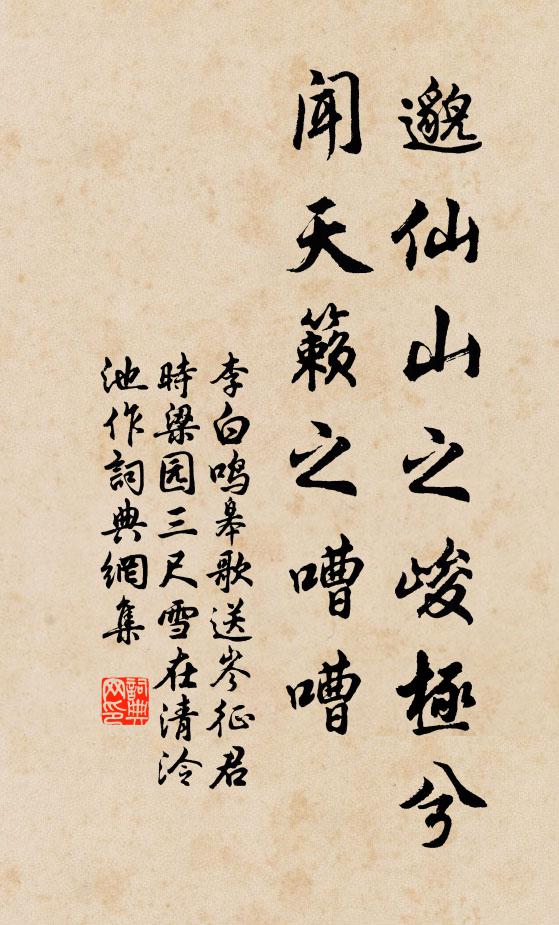 邈仙山之峻極兮
闻天籟之嘈嘈
李白鸣皋歌送岑征君
時梁园三尺雪在清泠
池作詞典網集
詞典
网印